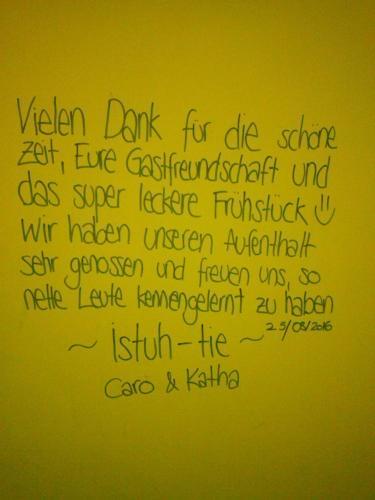 Vielen Dank für die schöne
Zeit, Eure Gastfreundschaft und
das super leckere Frühstück
Wir haben unseren Aufenthalt
sehr genossen und freuen uns, so
nette Leute kennengelernt zu haben
25/08/2016
~ istuh-tie ~
Caro & Katha